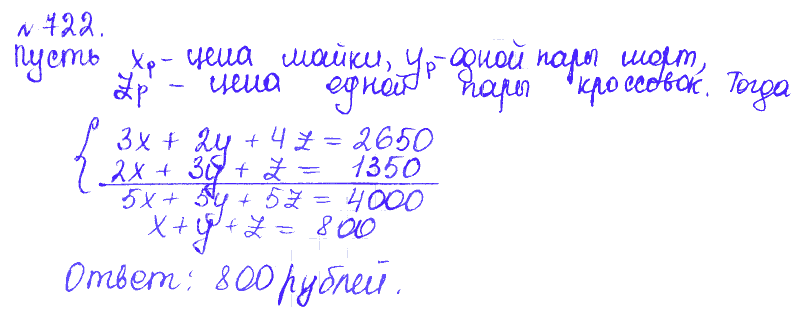 № 722.
Пусть xр - цена майки, yр - одной пары шорт,
zр - цена одной пары кроссовок. Тогда
3x + 2y + 4z = 2650
2x + 3y + z = 1350
5x + 5y + 5z = 4000
x + y + z = 800
Ответ: 800 рублей.